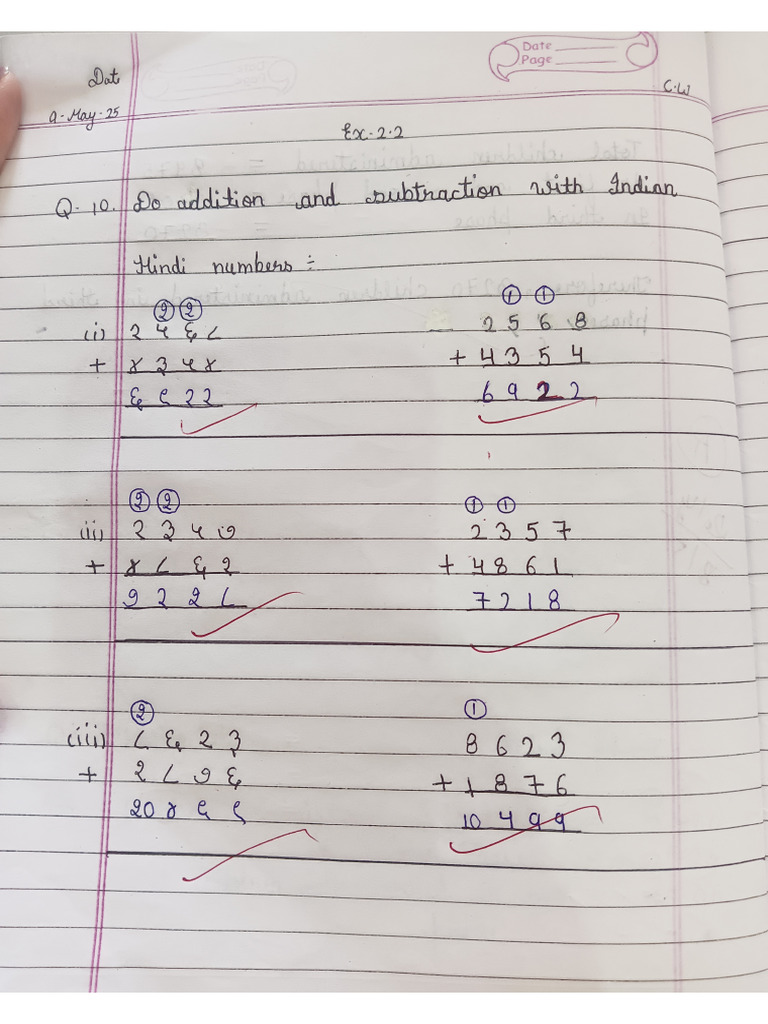 Date ______
Page ______
Dat
9-May-25
C.W
Ex-2.2
Q.10. Do addition and subtraction with Indian
Hindi numbers :-
१ १ 1 1
(i) २ ५ ६ ८ 2 5 6 8
+ ४ ३ ५ ४ + 4 3 5 4
६ ९ २ २ 6 9 2 2
१ १ 1 1
(ii) २ ३ ५ ७ 2 3 5 7
+ ४ ८ ६ १ + 4 8 6 1
७ २ १ ८ 7 2 1 8
१ 1
(iii) ८ ६ २ ३ 8 6 2 3
+ १ ८ ७ ६ + 1 8 7 6
१० ४ ९ ९ 10 4 9 9